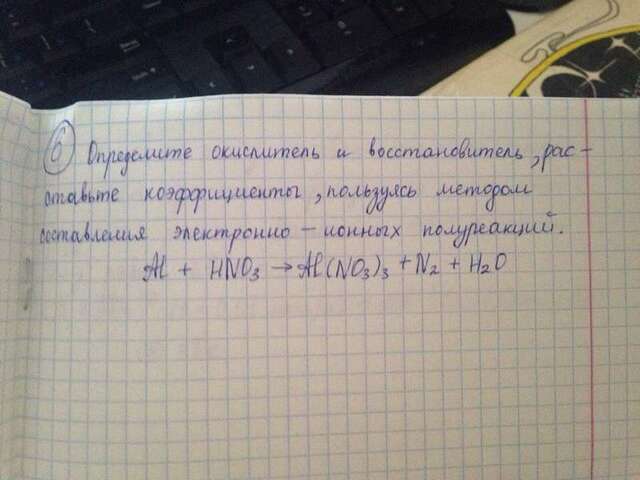 6 Определите окислитель и восстановитель, рас-
ставьте коэффициенты, пользуясь методом
составления электронно - ионных полуреакций.
Al + HNO₃ → Al(NO₃)₃ + N₂ + H₂O